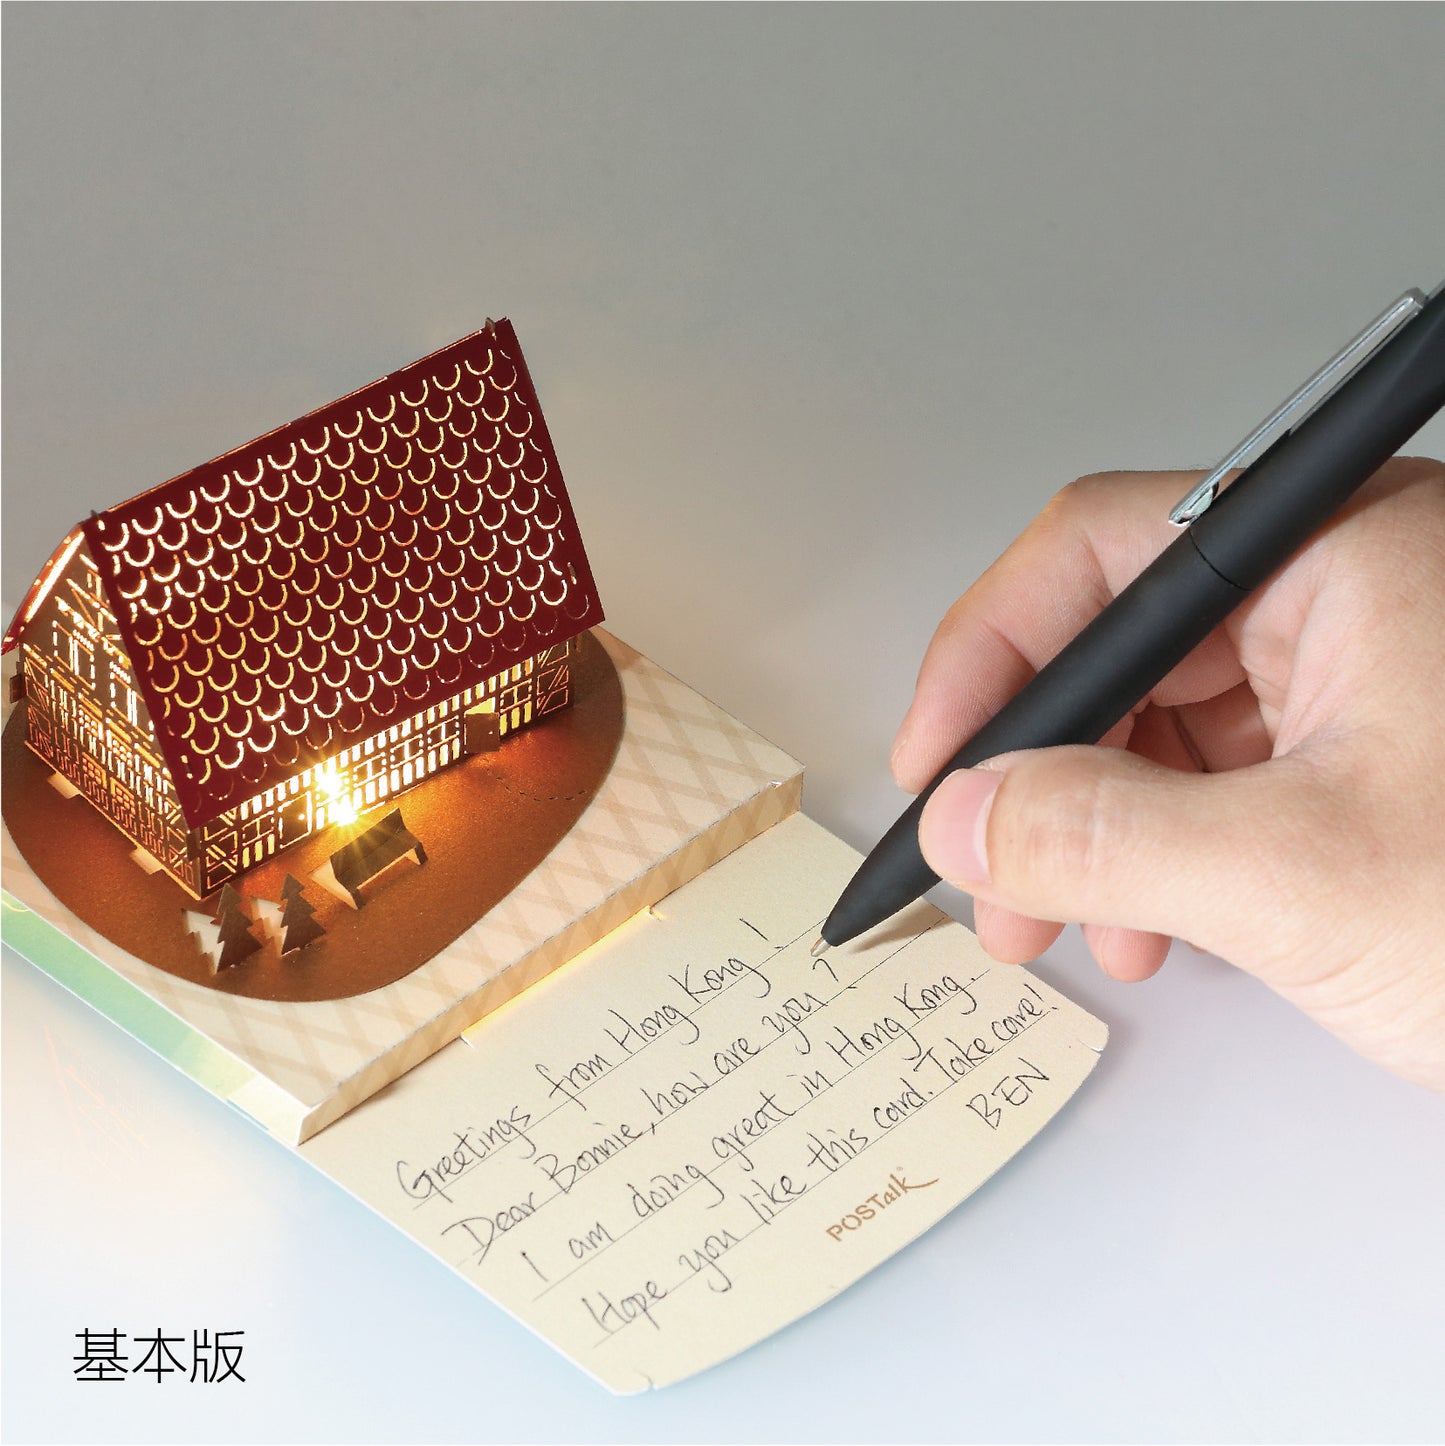 Greetings from Hong Kong !
Dear Bonnie, how are you ?
I am doing great in Hong Kong.
Hope you like this card. Take care!
BEN
POSTalk
基本版